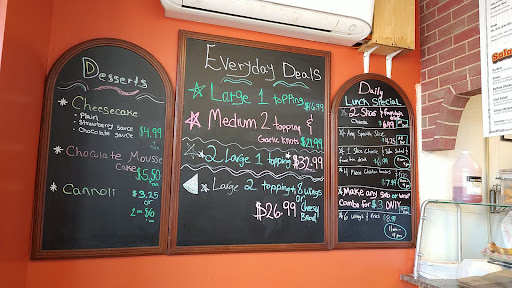 Desserts
Cheesecake
• Plain
• Strawberry sauce
• Chocolate sauce
$4.99
Chocolate Mousse
Cake
$5.50
Cannoli
$3.25
or
2 for $6
Everyday Deals
Large 1 topping
$16.99
Medium 2 topping &
Garlic knots $21.99
2 Large 1 topping
$32.99
Large 2 topping + 8 wings
or
$26.99 Cheesy
Bread
Daily
Lunch Special
2 Slices &
Cheese $6.99
Any Specialty Slice
1 Slice Cheese & Side Salad &
fountain drink $9.99
4 Piece Chicken
$7.99
Make any sub or
Combo for $3 ONLY
6 wings & fries
11am -
4pm
Salad